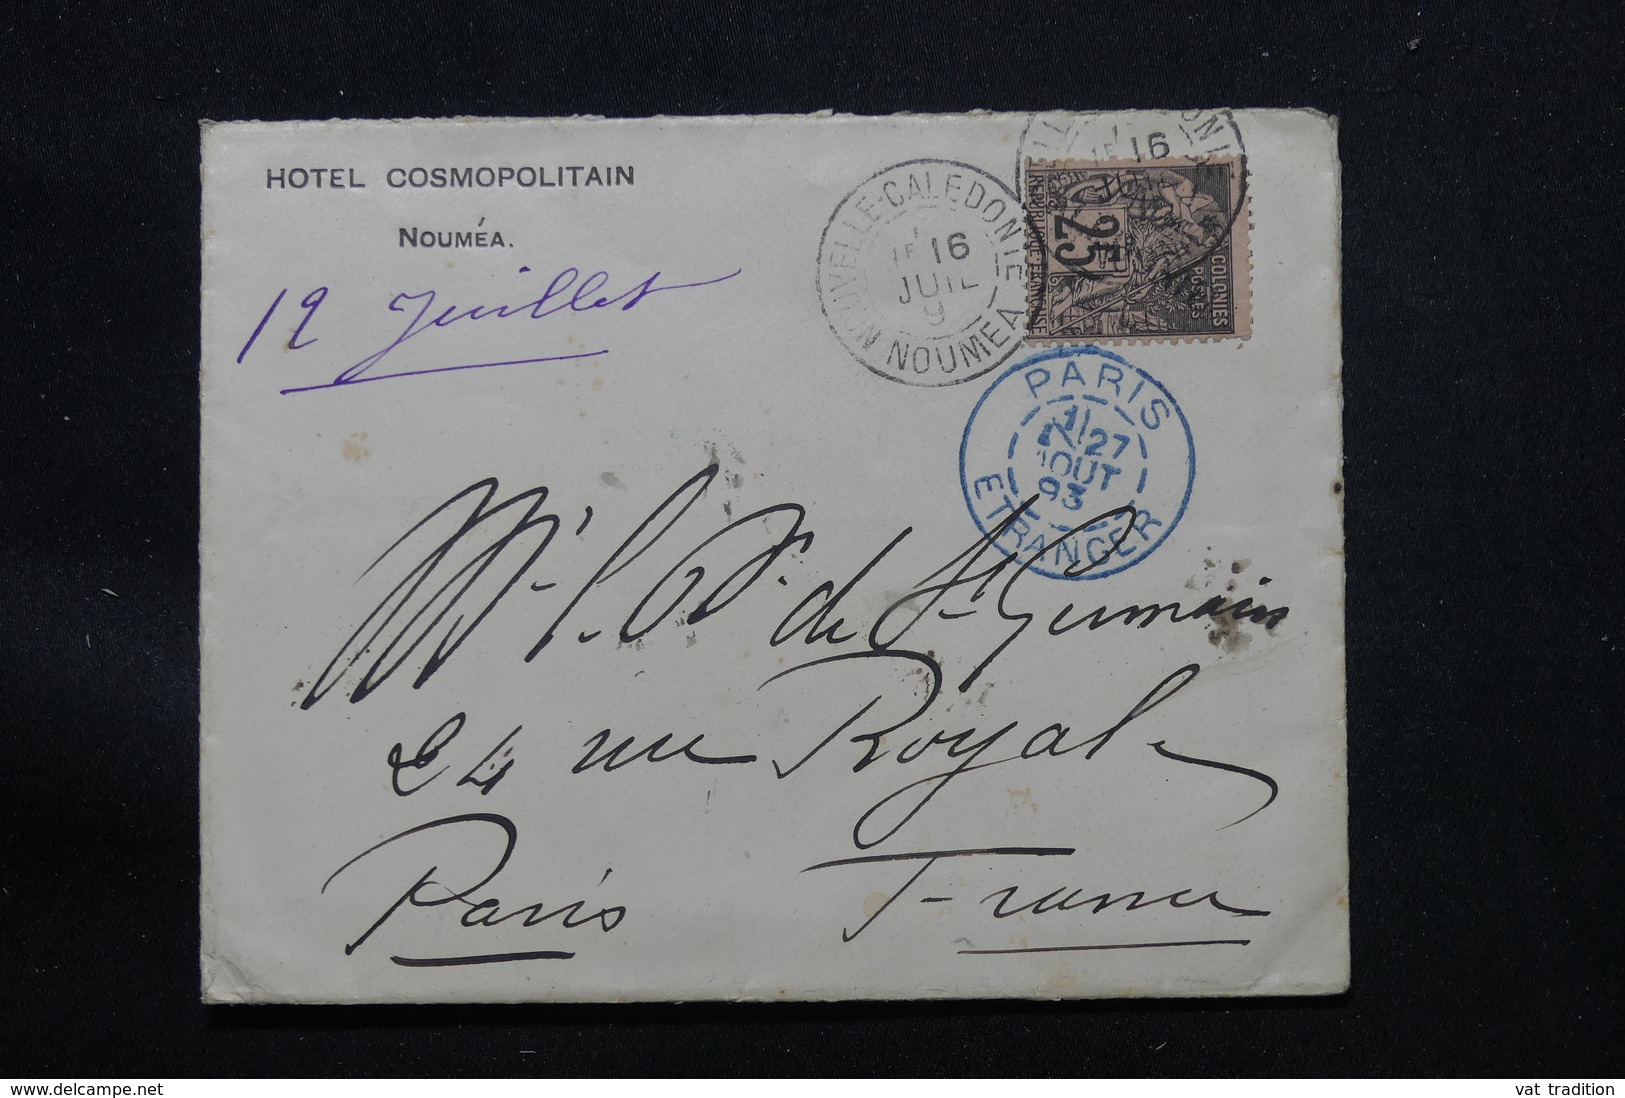 HOTEL COSMOPOLITAIN
NOUMÉA.
12 Juillet
NOUVELLE-CALEDONIE
16
JUIL
9
NOUMEA
16
COLONIES
POSTES
25
REPUBLIQUE FRANÇAISE
PARIS
27
AOUT
93
ETRANGER
de St Germain
24 rue Royale
Paris France
delcampe.net
vat_tradition